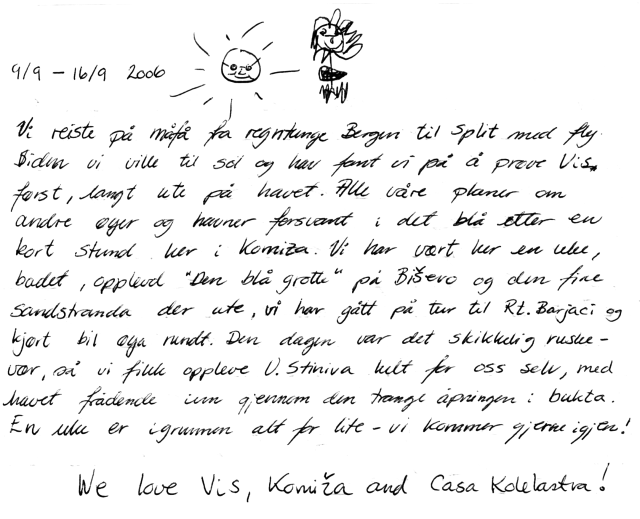 9/9 – 16/9 2006
Vi reiste på måfå fra regntunge Bergen til Split med fly.
Siden vi ville til sol og hav fant vi på å prøve Vis
først, langt ute på havet. Alle våre planer om
andre øyer og havner forsvant i det blå etter en
kort stund her i Komiža. Vi har vært her en uke,
badet, opplevd "Den blå grotte" på Biševo og den fine
sandstranda der ute, vi har gått på tur til Rt. Barjaci og
kjørt bil øya rundt. Den dagen var det skikkelig ruske-
vær, så vi fikk oppleve U. Stiniva helt for oss selv, med
havet frådende inn gjennom den trange åpningen i bukta.
En uke er igrunnen alt for lite – vi kommer gjerne igjen!
We love Vis, Komiža and Casa Kolelastra!